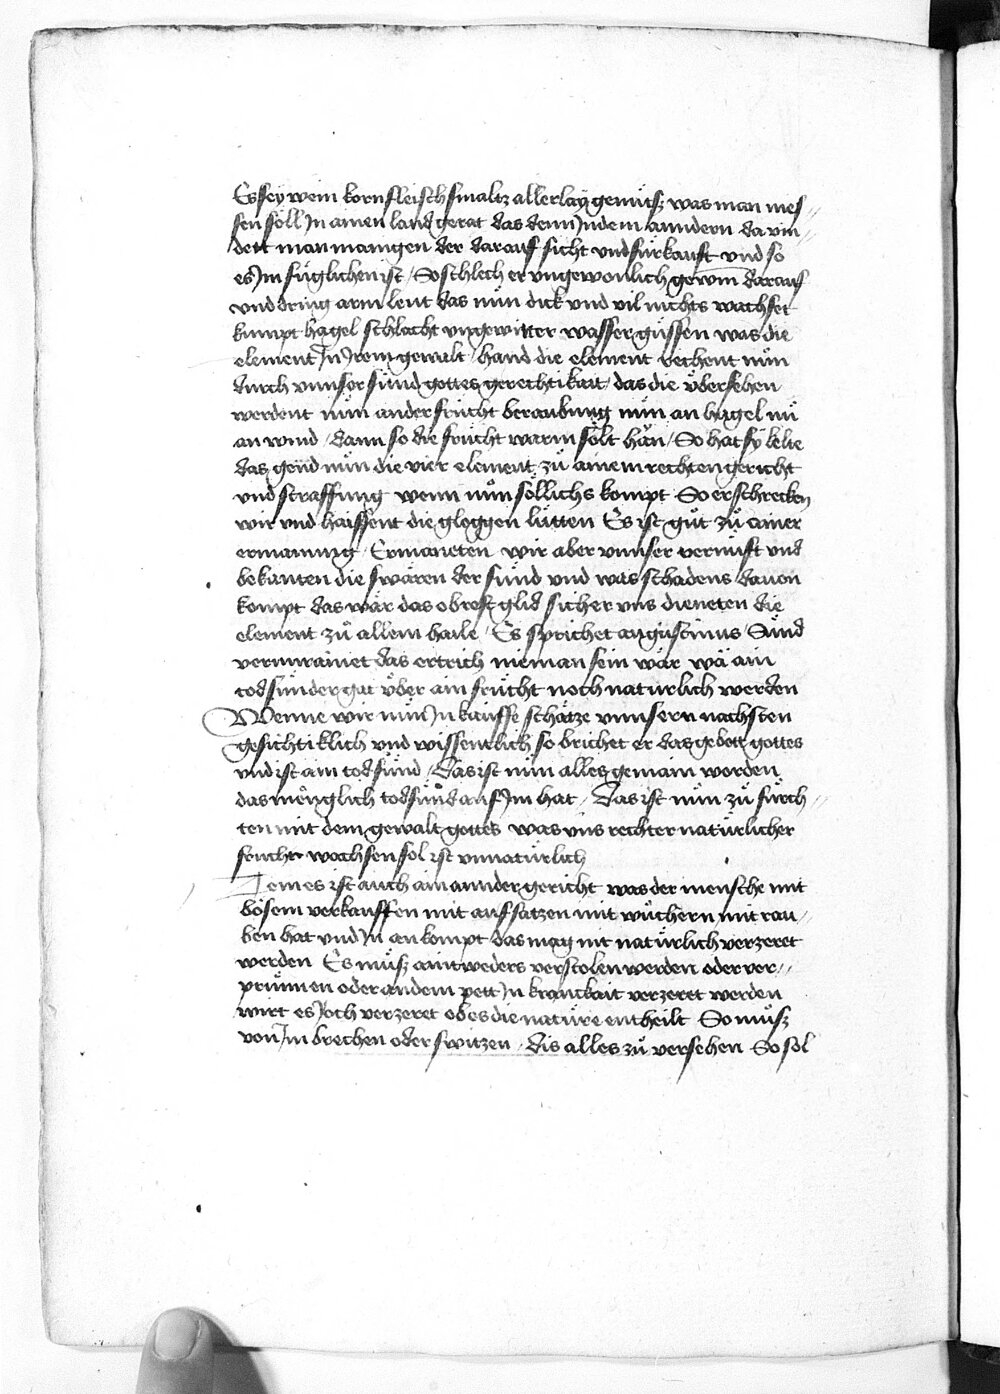 Es sey wein korn fleisch smaltz allerlay gemüsz was man mes//
sen soll Jn ainen land gerat das denn Jn dem anndern da vin//
dett man manigen der darauf sicht vnd fürkauft vnd so
es Jm füglichen ist / So schlech er vngewonlich gewin darauf
vnd dring arm leut das nün dick vnd vil nichts wachset
kumpt hagel schlacht vngewitter wasser güssen was die
element Jn Jrem gewalt hand die element rechent nün
durch vnnser sünd gottes gerechtikait / das die übersehen
werdent nün ander frücht beraubung nün an hagel nü
an wind / dann so die frücht warm sölt hän / So hat sy kelte
das gend nün die vier element zü ainem rechten gericht
vnd straffung wenn nün söllichs kompt So erschrecken
wir vnd haissent die gloggen lütten Es ist güt zü ainer
ermanung / Ermaneten wir aber vnnser vernüft vnd
bekanten die swären der sünd vnd was schadens dauon
kompt das wär das obrest glid sicher vns dieneten die
element zü allem haile / Es sprichet augustinus / Sünd
vermrainet das ertrich nieman sein wär wä ain
todsünder gat über ain frücht noch natürlich werden
Wenne wir nün Jn kauffe schätze vnnsern nachsten
gesichtiklich vnd wissentlich so brichet er das gebott gottes
vnd ist ain todsünd / Das ist nün alles gemain worden
das menglich todsünd auf Jm hat / Das ist nün zü fürch//
ten mit dem gewalt gottes was vns rechter natürlicher
frucht wachsen sol ist vnnatürlich
Jtem es ist auch ain annder gericht was der mensche mit
bösem verkauffen mit aufsatzen mit wüchern mit rau/
ben hat vnd Jn ankompt das mag nit natürlich verzeret
werden Es müsz aintweders verstolen werden oder ver//
prünnen oder an dem pett Jn kranckait verzeret werden
wirt es Joch verzeret ob es die natüre entheilt So müsz
von Jm brechen oder switzen / Dis alles zü versehen So sol